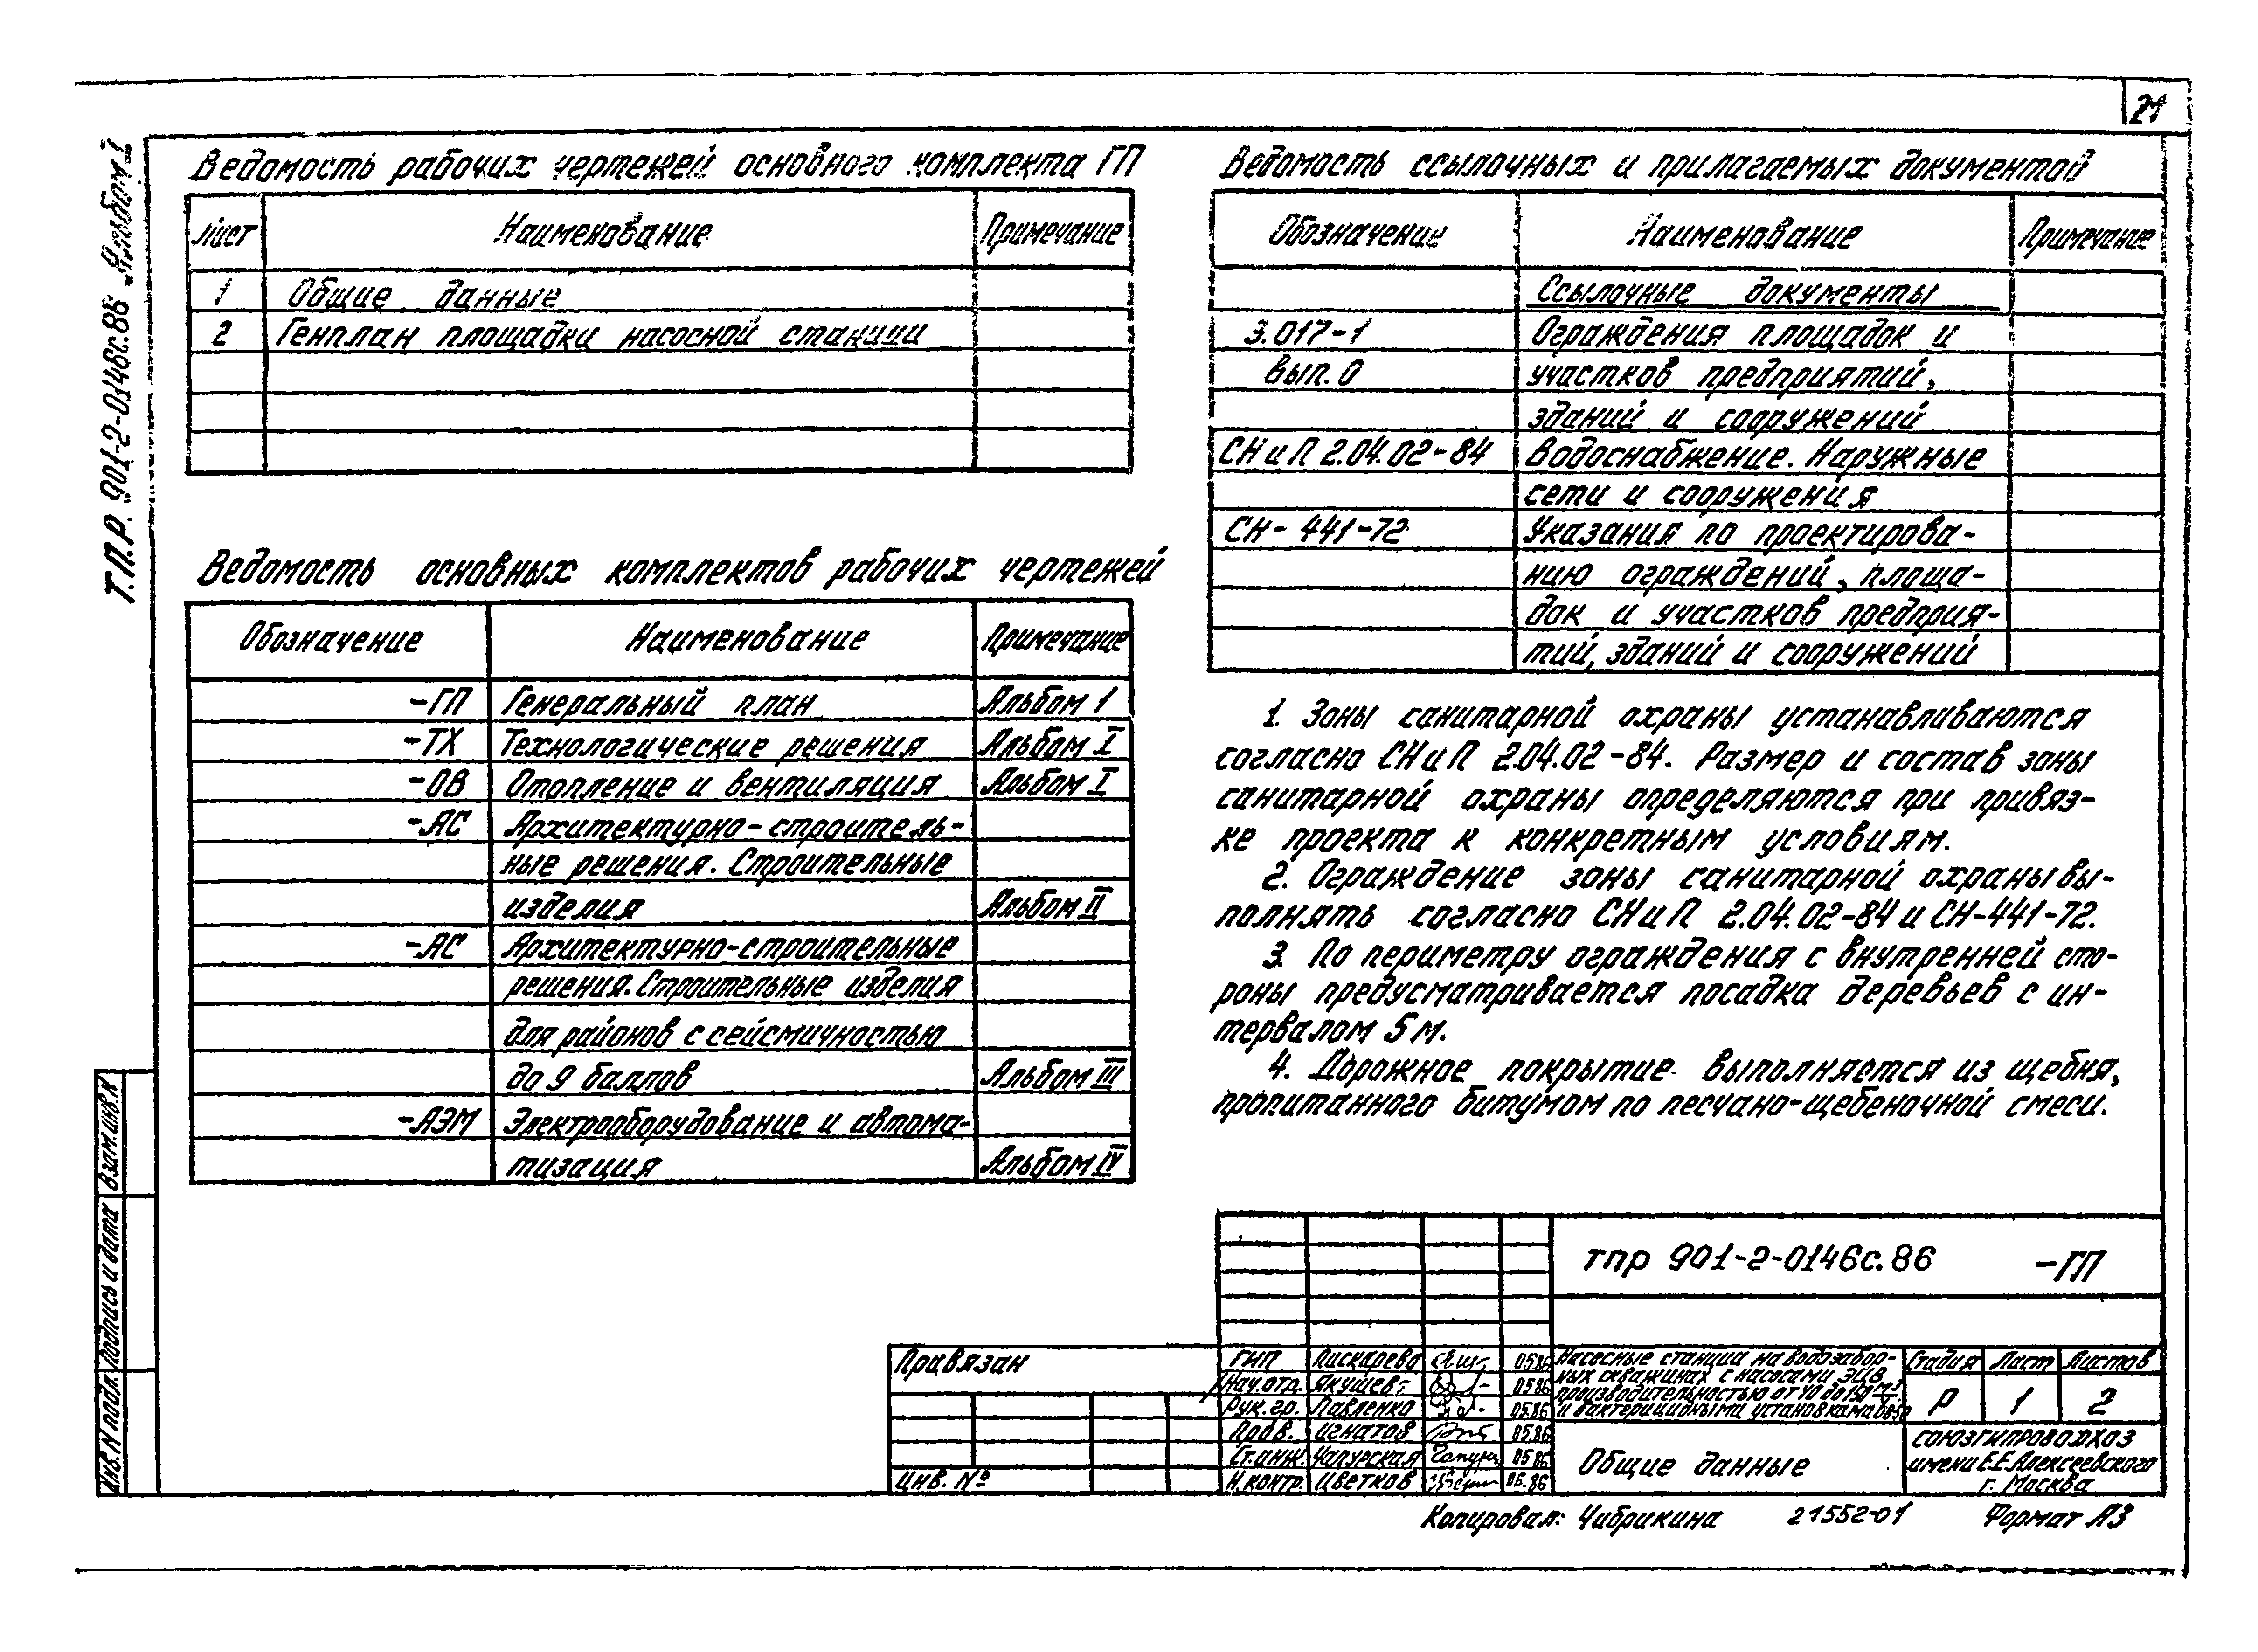 21
Т.П.Р. 901-2-0146с.86 Альбом I
Ведомость рабочих чертежей основного комплекта ГП
Лист Наименование Примечание
1 Общие данные
2 Генплан площадки насосной станции
Ведомость основных комплектов рабочих чертежей
Обозначение Наименование Примечание
-ГП Генеральный план Альбом 1
-ТХ Технологические решения Альбом I
-ОВ Отопление и вентиляция Альбом I
-АС Архитектурно-строитель-
ные решения. Строительные
изделия Альбом II
-АС Архитектурно-строительные
решения. Строительные изделия
для районов с сейсмичностью
до 9 баллов Альбом III
-АЭМ Электрооборудование и автома-
тизация Альбом IV
Ведомость ссылочных и прилагаемых документов
Обозначение Наименование Примечание
Ссылочные документы
3.017-1 Ограждения площадок и
Вып. 0 участков предприятий,
зданий и сооружений
СНиП 2.04.02-84 Водоснабжение. Наружные
сети и сооружения
СН-441-72 Указания по проектирова-
нию ограждений, площа-
док и участков предприя-
тий, зданий и сооружений
1. Зоны санитарной охраны устанавливаются
согласно СНиП 2.04.02-84. Размер и состав зоны
санитарной охраны определяются при привяз-
ке проекта к конкретным условиям.
2. Ограждение зоны санитарной охраны вы-
полнять согласно СНиП 2.04.02-84 и СН-441-72.
3. По периметру ограждения с внутренней сто-
роны предусматривается посадка деревьев с ин-
тервалом 5 м.
4. Дорожное покрытие выполняется из щебня,
пропитанного битумом по песчано-щебеночной смеси.
Взам.инв.N
Подпись и дата
Инв.N подл.
Привязан
Инв. №
тпр 901-2-0146с.86 -ГП
ГИП Пискарева 05.86
Нач.отд. Якушев 05.86
Рук.гр. Павленко 05.86
Пров. Игнатов 05.86
Ст.инж. Чапурская 05.86
Н.контр. Цветков 06.86
Насосные станции на водозабор-
ных скважинах с насосами ЭЦВ
производительностью от 40 до 150 м³
и бактерицидными установками
Стадия Лист Листов
Р 1 2
Общие данные
СОЮЗГИПРОВОДХОЗ
имени Е.Е.Алексеевского
г. Москва
Копировал: Чибрикина 21552-01 Формат А3